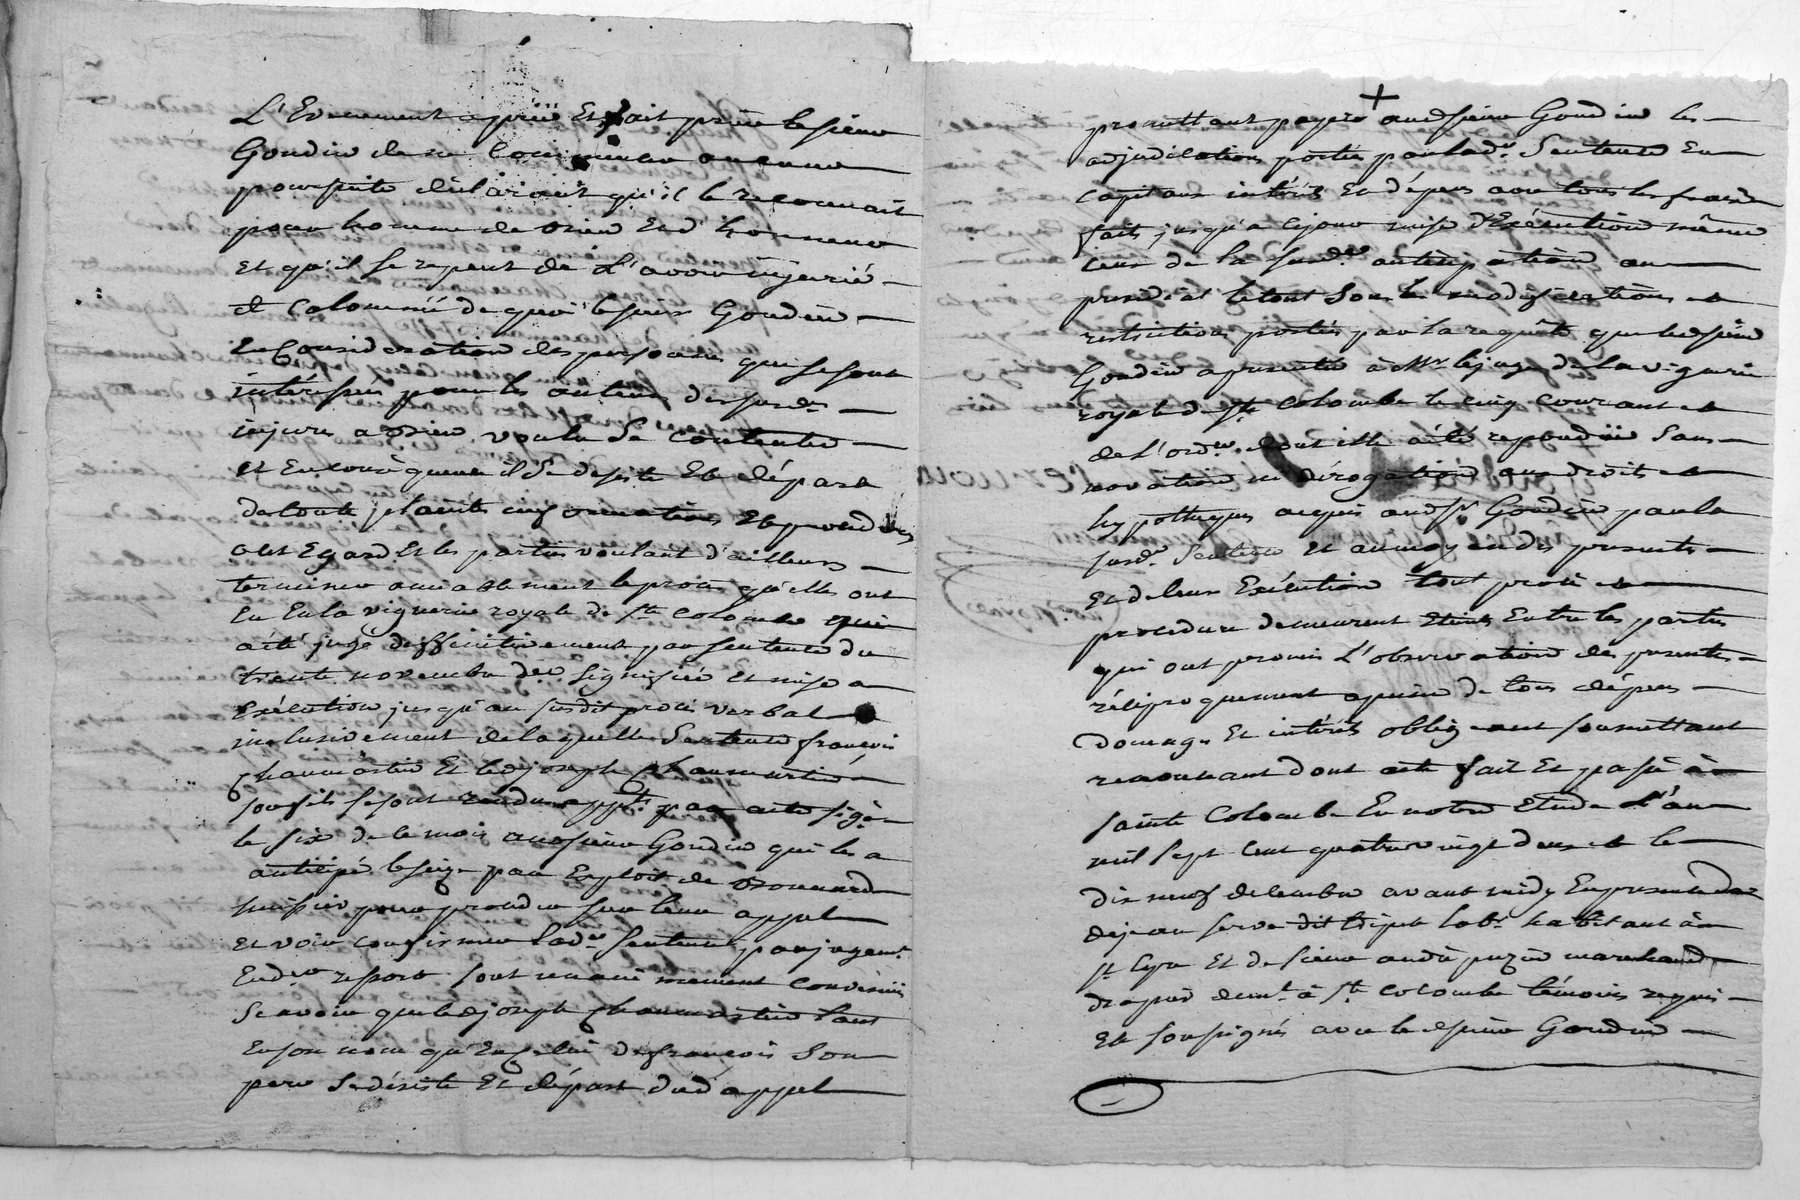 L'Evenement a prié Et fait prier le sieur
Gondin de ne Commencer aucune
poursuite declarant qu'il le reconnait
pour homme de bien Et d'honneur
et qu'il se repent de L'avoir injurié
et Calomnié de quoi le sieur Gondin
En Consideration des personnes qui se sont
intéressées pour les auteurs des susd.
injures a bien voulu se contenter
et En conséquence il se desiste Et départ
de toute plainte informations Et procedures
a cet Egard Et les parties voulant d'ailleurs
terminer amiablement le procès qu'elles ont
Eu En la viguerie royale de Ste Colombe qui
a été jugé deffinitivement par sentence du
trente novembre der signifiée et mise a
Exécution jusqu'au susdit procès verbal
inclusivement de laquelle Sentence françois
Chaumartin Et led joseph Chaumartin
son fils se sont rendus appts par acte sig.
le six de ce mois aud sieur Gondin qui les a
anticipé le seize par Exploit de
huissier pour procedre sur leur appel
et voir confirmer lade Sentence par jugemt
En dr ressort sont unanimement convenus
Scavoir que led joseph Chaumartin tant
En son nom qu'En celui de françois Son
pere Se désiste Et départ dud appel
promettant payer aud sieur Gondin les
adjudications portées par lade. Sentence En
Capitaux intérêts Et dépens avec tous les frais
faits jusqu'à cejour mise d'Exécution même
ceux de la susde anticipation au
presidial le tout Sous les modifications et
restrictions portées par la requête que led sieur
Gondin a presentée à Mr le juge de la viguerie
royale de Ste Colombe le cinq courant et
de L'ordce. dont elle a été repondüe Sans
novation ni dérogation aux droits et
hypotheques acquis aud Sr Gondin par la
susde Sentence Et au moyen des presentes
Et de leur Exécution tout procès et
procedure demeurent Eteints Entre les parties
qui ont promis L'observation des presentes
réciproquement a peine de tous dépens
domages Et intérêts obligeant soumettant
renonceant dont acte fait Et passé à
sainte Colombe En notre Etude L'an
mil sept cent quatre vingt deux et le
dix neuf decembre avant midy En presence
de jean serve dit labr. habitant à
St Cyr Et de sieur andré puzin marchand
drapier demt. à Ste Colombe témoins requis
Et soussignés avec led sieur Gondin